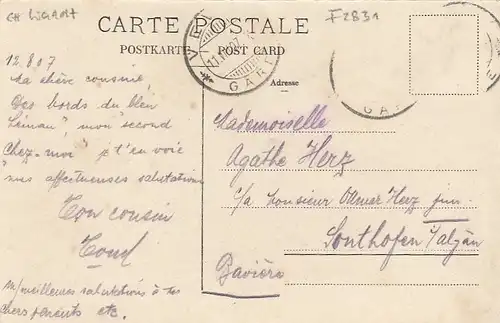 CH
F2831
CARTE POSTALE
POSTKARTE POST CARD
GARE
Adresse
12.8 07
Ma chère cousine
Des bords du bleu
Léman, mon "second
Chez-moi" je t'envoie
mes affectueuses salutations
Ton cousin
m/meilleures salutations à tes
chers parents etc.
Mademoiselle
Agathe Herz
c/a Monsieur Ottmar Herz jun.
Sonthofen
Bavière